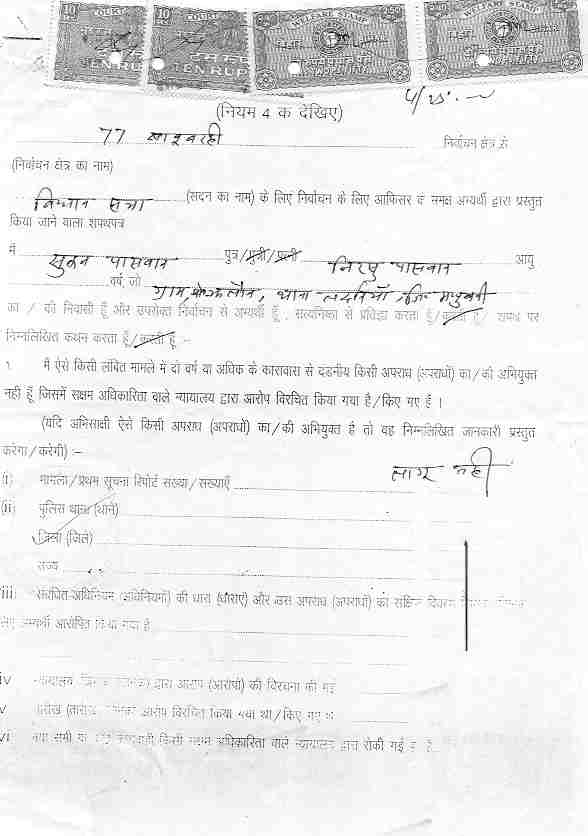 WELFARE STAMP
TEN RUP
(नियम 4 क देखिए)
77
निर्वाचन क्षेत्र के
(निर्वाचन क्षेत्र का नाम)
विधान सभा (सदन का नाम) के लिए निर्वाचन के लिए आफिसर के समक्ष अभ्यर्थी द्वारा प्रस्तुत
किया जाने वाला शपथपत्र
मैं सुकन पासवान पुत्र/पुत्री/पत्नी निरसु पासवान आयु
वर्ष, जो ग्राम, थाना लदनियाँ, जि० मधुबनी
का / की निवासी हूँ और उपरोक्त निर्वाचन से अभ्यर्थी हूँ , सत्यनिष्ठा से प्रतिज्ञा करता हूँ/करती हूँ/ शपथ पर
निम्नलिखित कथन करता हूँ/करती हूँ :-
मैं ऐसे किसी लंबित मामले में दो वर्ष या अधिक के कारावास से दंडनीय किसी अपराध (अपराधों) का/की अभियुक्त
नहीं हूँ जिसमें सक्षम अधिकारिता वाले न्यायालय द्वारा आरोप विरचित किया गया है/किए गए हैं ।
(यदि अभिसाक्षी ऐसे किसी अपराध (अपराधों) का/की अभियुक्त है तो वह निम्नलिखित जानकारी प्रस्तुत
करेगा/करेगी) :-
लागू नहीं
(i) मामला/प्रथम सूचना रिपोर्ट संख्या/संख्याएँ
(ii) पुलिस थाना (थाने)
जिला (जिले)
राज्य
iii) संबंधित अधिनियम (अधिनियमों) की धारा (धाराएं) और उस अपराध (अपराधों) का संक्षिप्त विवरण
लिए अभ्यर्थी आरोपित किया गया है
iv द्वारा आरोप (आरोपों) की विरचना की गई
v तारीख आरोप विरचित किया गया था/किए गए थे
vi किसी सक्षम अधिकारिता वाले न्यायालय द्वारा रोकी गई